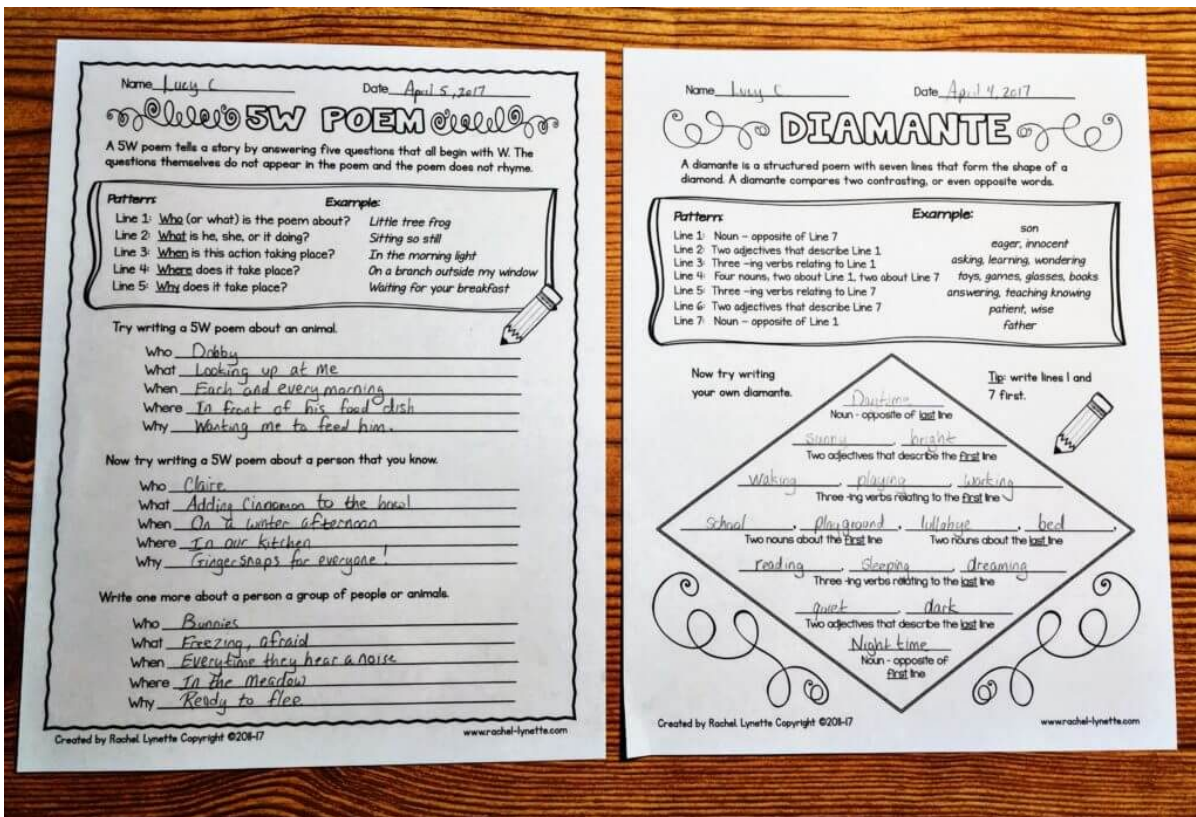 Name Lucy C Date April 5, 2017
5W POEM
A 5W poem tells a story by answering five questions that all begin with W. The
questions themselves do not appear in the poem and the poem does not rhyme.
Pattern: Example:
Line 1: Who (or what) is the poem about? Little tree frog
Line 2: What is he, she, or it doing? Sitting so still
Line 3: When is this action taking place? In the morning light
Line 4: Where does it take place? On a branch outside my window
Line 5: Why does it take place? Waiting for your breakfast
Try writing a 5W poem about an animal.
Who Dobby
What Looking up at me
When Each and every morning
Where In front of his food dish
Why Wanting me to feed him.
Now try writing a 5W poem about a person that you know.
Who Claire
What Adding Cinnamon to the bowl
When On a winter afternoon
Where In our kitchen
Why Gingersnaps for everyone!
Write one more about a person a group of people or animals.
Who Bunnies
What Freezing, afraid
When Everytime they hear a noise
Where In the meadow
Why Ready to flee
Created by Rachel Lynette Copyright ©2011-17 www.rachel-lynette.com
Name Lucy C Date April 4, 2017
DIAMANTE
A diamante is a structured poem with seven lines that form the shape of a
diamond. A diamante compares two contrasting, or even opposite words.
Pattern: Example:
Line 1: Noun – opposite of Line 7 son
Line 2: Two adjectives that describe Line 1 eager, innocent
Line 3: Three –ing verbs relating to Line 1 asking, learning, wondering
Line 4: Four nouns, two about Line 1, two about Line 7 toys, games, glasses, books
Line 5: Three –ing verbs relating to Line 7 answering, teaching knowing
Line 6: Two adjectives that describe Line 7 patient, wise
Line 7: Noun – opposite of Line 1 father
Now try writing
your own diamante.
Tip: write lines 1 and
7 first.
Daytime
Noun - opposite of last line
sunny, bright
Two adjectives that describe the first line
Waking, playing, working
Three -ing verbs relating to the first line
School, playground, lullabye, bed,
Two nouns about the first line Two nouns about the last line
reading, Sleeping, dreaming
Three -ing verbs relating to the last line
quiet, dark
Two adjectives that describe the last line
Night time
Noun - opposite of
first line
Created by Rachel Lynette Copyright ©2011-17 www.rachel-lynette.com